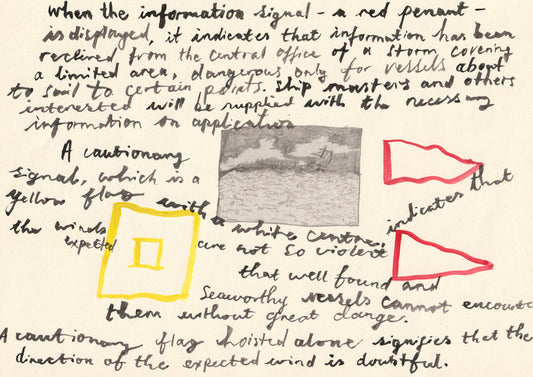 When the information signal - a red penant -
is displayed, it indicates that information has been
recieved from the central office of a storm covering
a limited area, dangerous only for vessels about
to sail to certain points. Ship masters and others
interested will be supplied with the necessary
information on application
A cautionary
signal, which is a
yellow flag with a white centre, indicates that
the winds expected are not so violent
that well found and
Seaworthy vessels cannot encounte
them without great dange.
A cautionary flag hoisted alone signifies that the
direction of the expected wind is doubtful.